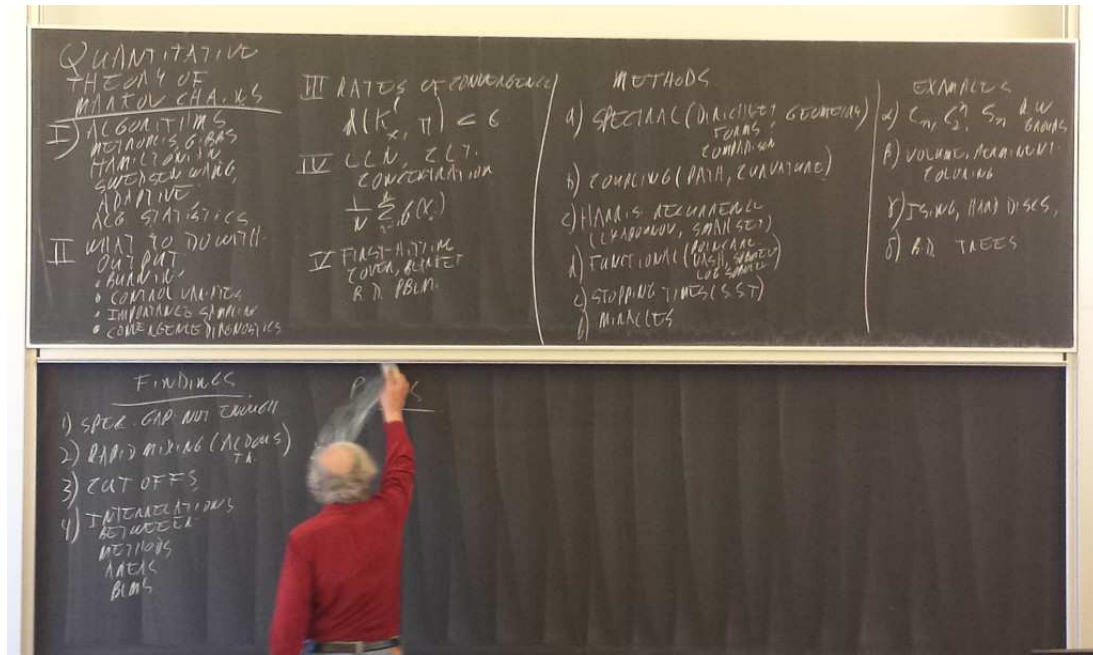 QUANTITATIVE
THEORY OF
MARKOV CHAINS
I) ALGORITIMS
METROPOLIS, GIBBS
HAMILTONIAN
SWENDSEN WANG,
ADAPTIVE
ALG STATISTICS
II WHAT TO DO WITH
OUTPUT
• BURNIN,
• CONTROL VARIATES
• IMPORTANCE SAMPLING
• CONVERGENCE DIAGNOSTICS
III RATES OF CONVERGENCE
d(K^l_x, π) < ε
IV LLN, CLT.
CONCENTRATION
1/N Σ f(X_i)
V FIRST-HITTING
COVER, BLANKET
B.D. PBLM.
METHODS
a) SPECTRAL (DIRICHLET GEOMETRIES)
FORMS,
COMPARISON
b) COUPLING (PATH, CURVATURE)
c) HARRIS RECURRENCE
(LYAPONOV, SMALL SET)
d) FUNCTIONAL (POINCARE
NASH, SOBOLEV
LOG SOBOLEV)
e) STOPPING TIMES (S.S.T)
f) MIRACLES
EXAMPLES
α) C_n, C_2^n, S_n R.W
GROUPS
β) VOLUME, PERMANENT
COLORING
γ) ISING, HARD DISCS,
δ) B.D. TREES
FINDINGS
1) SPEC. GAP NOT ENOUGH
2) RAPID MIXING (ALDOUS)
3) CUT OFFS
4) INTERRELATIONS
BETWEEN
METHODS
AREAS
PBLMS